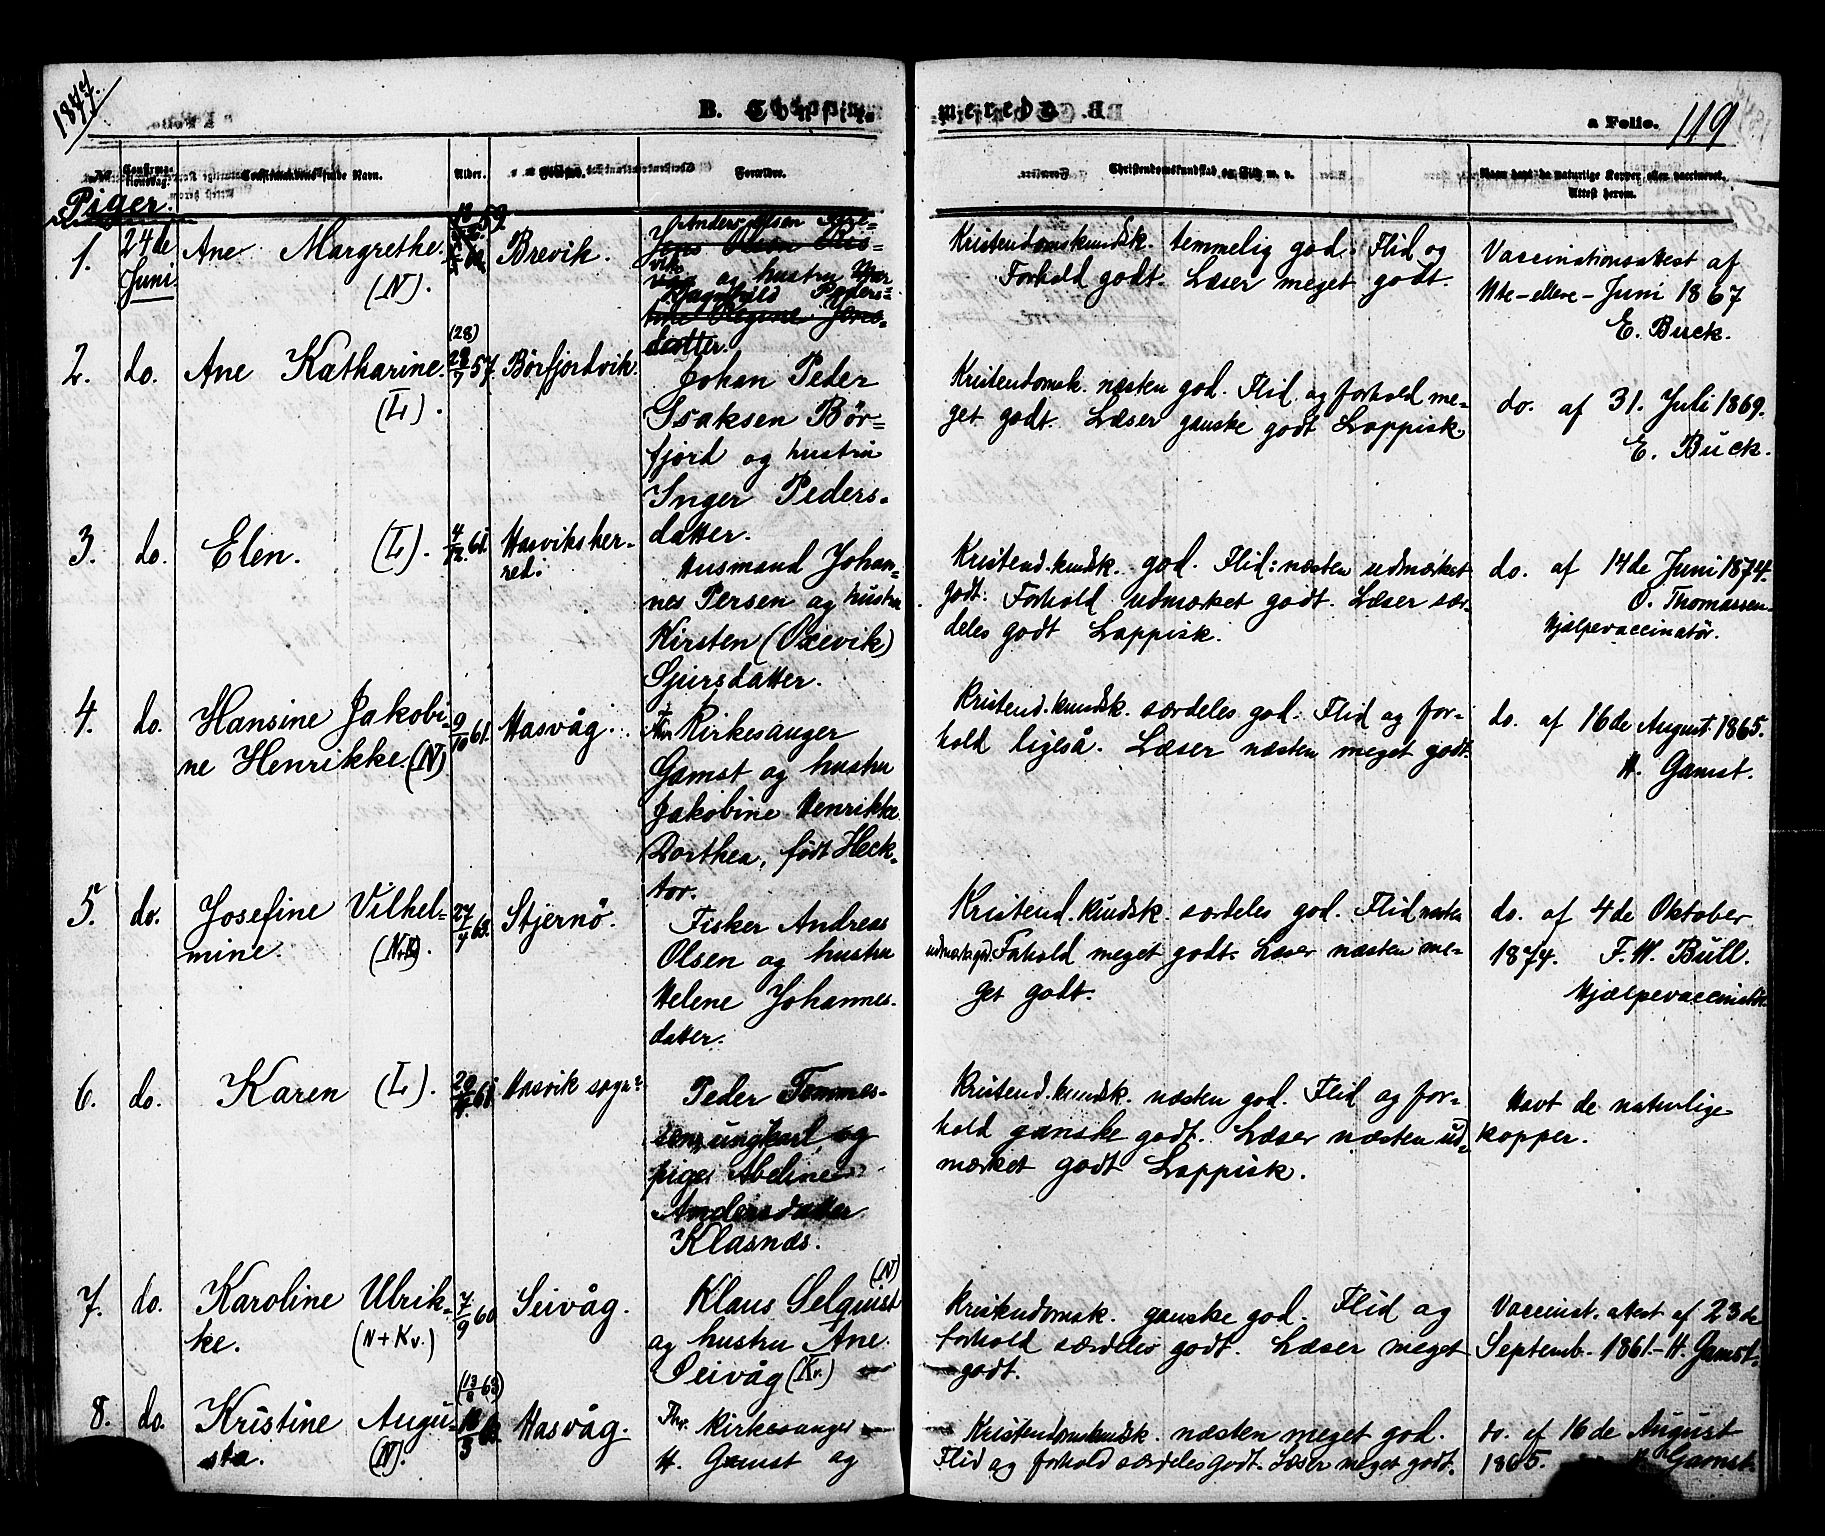 1877.
B. Confir
merede.
a Folio. 119
No. Confirmationsdag. Confirmandens fulde Navn. Alder. Forældre. Christendomskundskab og Flid m. v. Naar havt de naturlige Kopper eller vaccineret. Attest herom.
Piger.
1. 24de Juni.
Ane Margrethe.
(N).
59.
Brevik.
Anders Olsen
Jens Olsen
og hustru
Magnhild Peders-
Regine Jens-
datter.
Kristendomskundsk. temmelig god. Flid og
Forhold godt. Læser meget godt.
Vaccinationsattest af
11te-ellevte-Juni 1867
E. Buck.
2. do.
Ane Katharine.
(L).
(28)
57.
Børfjordvik.
Johan Peder
Isaksen Bör-
fjord og hustru
Inger Peders-
datter.
Kristendomsk. næsten god. Flid og forhold me-
get godt. Læser ganske godt Lappisk.
do. af 31. Juli 1869.
E. Buck.
3. do.
Elen. (L).
4/12 61.
Hasviksher-
red.
Husmand Johan-
nes Persen og hustru
Kirsten (Oxevik)
Sjursdatter.
Kristend.kundsk. god. Flid: næsten udmærket
godt. Forhold udmærket godt. Læser sær-
deles godt Lappisk.
do. af 14de Juni 1874.
O. Thomassen
Hjælpevaccinatör.
4. do.
Hansine Jakobi-
ne Henrikke. (N)
9/10 61.
Hasvåg.
Kirkesanger
Gamst og hustru
Jakobine Henrikke
Dorthea, født Heck-
tor.
Kristend.kundsk. særdeles god. Flid og for-
hold ligeså. Læser næsten meget godt.
do. af 16de August 1865.
H. Gamst.
5. do.
Josefine Vilhel-
mine.
27/4 63.
Stjernö.
Fisker Andreas
Olsen og hustru
Helene Johannes-
datter.
Kristend.kundsk. særdeles god. Flid næsten
Forhold meget godt. Læser næsten me-
get godt.
do. af 4de Oktober
1874. F. W. Bull.
Hjælpevaccinatör.
6. do.
Karen (L).
Hasvik sogn.
Peder Tommes-
sen, ungkarl og
pige Abeline
Andersdatter
Klasnæs.
Kristend.kundsk. næsten god. Flid og for-
hold ganske godt. Læser næsten ud-
mærket godt Lappisk.
Havt de naturlige
kopper.
7. do.
Karoline Ulrik-
ke. (N+Kv.)
7/9 60.
Seivåg.
(N)
Klaus Selquist
og hustru Ane
Seivåg (Kv.)
Kristendomsk. ganske god. Flid og
forhold særdeles godt. Læser meget
godt.
Vaccinat. attest af 23de
Septemb. 1861 - H. Gamst.
8. do.
Kristine Augu-
sta. (N).
Hasvåg.
Kirkesanger
H. Gamst og
Kristendomskundsk. næsten meget god.
Flid og forhold særdeles godt. Læser meget godt.
do. af 16de August
1865. H. Gamst.